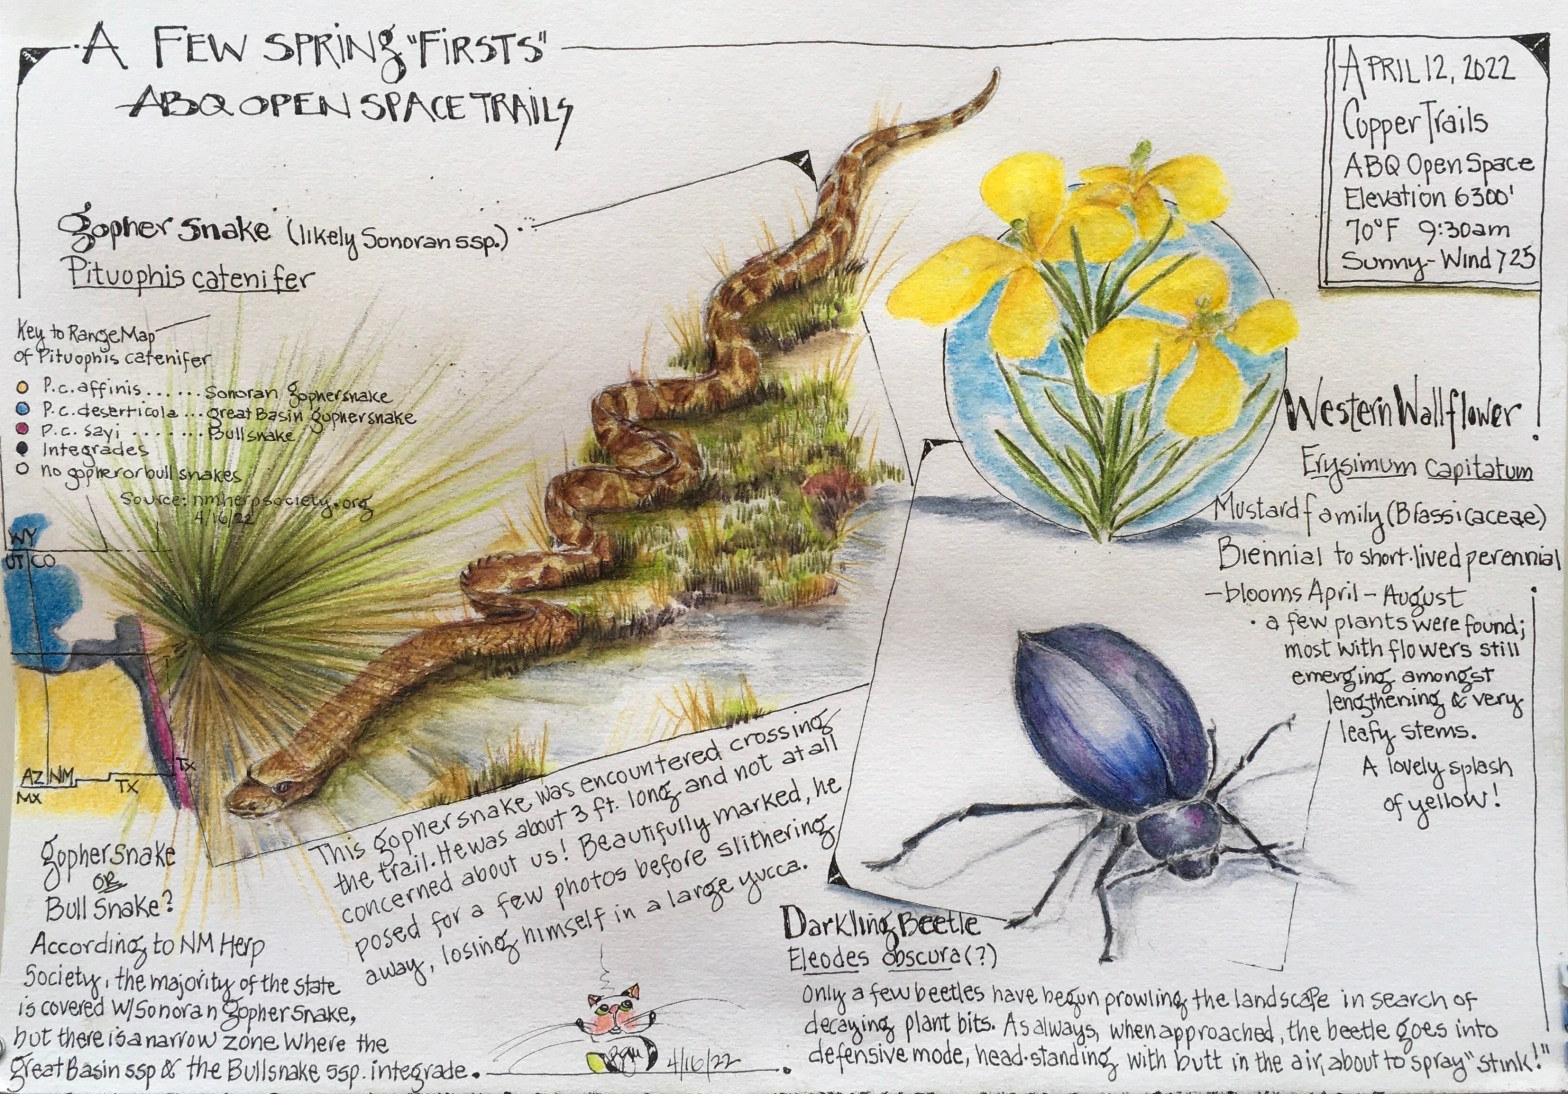 A Few Spring "Firsts"
ABQ Open Space Trails
April 12, 2022
Copper Trails
ABQ Open Space
Elevation 6300'
70°F 9:30am
Sunny-Wind 725
gopher snake (likely Sonoran ssp.)
Pituophis catenifer
Key to Range Map
of Pituophis catenifer
P.c. affinis...... Sonoran gophersnake
P.c. deserticola... great Basin gophersnake
P.c. sayi........ Bullsnake
Integrades
no gopher or bull snakes
Source: nmherpsociety.org
4/16/22
WY
UT CO
AZ NM
TX
TX
MX
gophersnake
or
Bull Snake?
According to NM Herp
Society, the majority of the state
is covered w/Sonoran gopher snake,
but there is a narrow zone where the
great Basin ssp & the Bullsnake ssp. integrade.
This gophersnake was encountered crossing
the trail. He was about 3 ft. long and not at all
concerned about us! Beautifully marked, he
posed for a few photos before slithering
away, losing himself in a large yucca.
4/16/22
Western Wallflower
Erysimum capitatum
Mustard family (Brassicaceae)
Biennial to short-lived perennial
-blooms April - August
· a few plants were found;
most with flowers still
emerging amongst
lengthening & very
leafy stems.
A lovely splash
of yellow!
Darkling Beetle
Eleodes obscura (?)
Only a few beetles have begun prowling the landscape in search of
decaying plant bits. As always, when approached, the beetle goes into
defensive mode, head-standing, with butt in the air, about to spray "stink!"